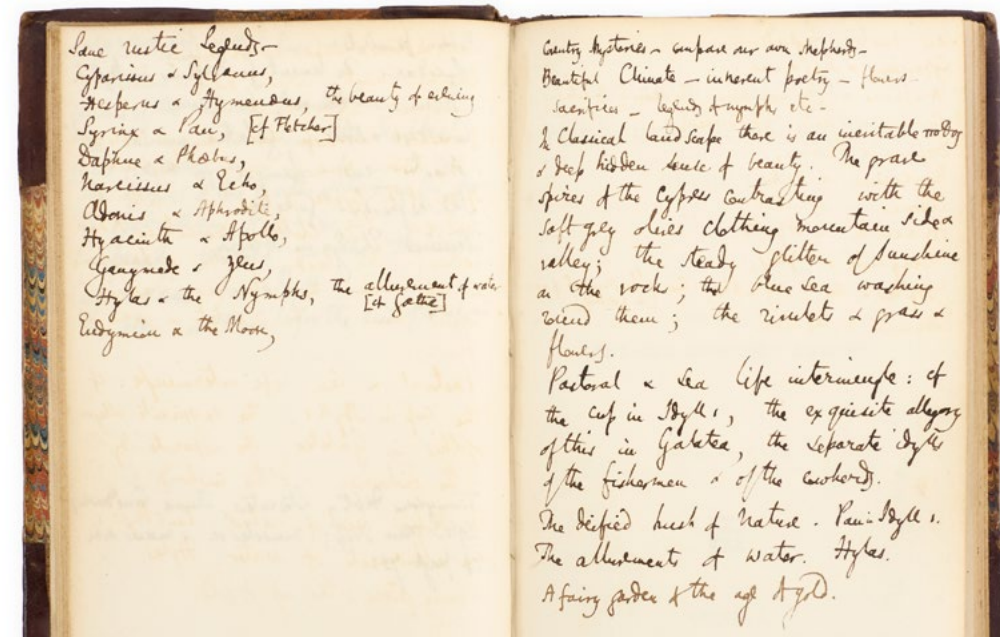 Some rustic Legends—
Cyparissus & Sylvanus,
Hesperus & Hymenaeus, the beauty of evening
Syrinx & Pan, [cf Fletcher]
Daphne & Phœbus,
Narcissus & Echo,
Adonis & Aphrodite,
Hyacinth & Apollo,
Ganymede & Zeus,
Hylas & the Nymphs, the allurement of water
[cf Goethe]
Endymion & the Moon,
Country Mysteries – compare our own shepherds –
Beautiful Climate – inherent poetry – flowers –
sacrifices – legends of nymphs etc –
In Classical landscape there is an inevitable
& deep hidden sense of beauty. The grave
spires of the Cypress contrasting with the
soft grey olives clothing mountain side &
valley; the steady glitter of sunshine
on the rocks; the blue sea washing
round them; the rivulets & grass &
flowers.
Pastoral & Sea life intermingle: cf
the cup in Idyll 1, the exquisite allegory
of this in Galatea, the separate idylls
of the fishermen & of the cowherds.
The deified hush of Nature. Pan: Idyll 1.
The allurements of water. Hylas.
A fairy garden & the age of gold.